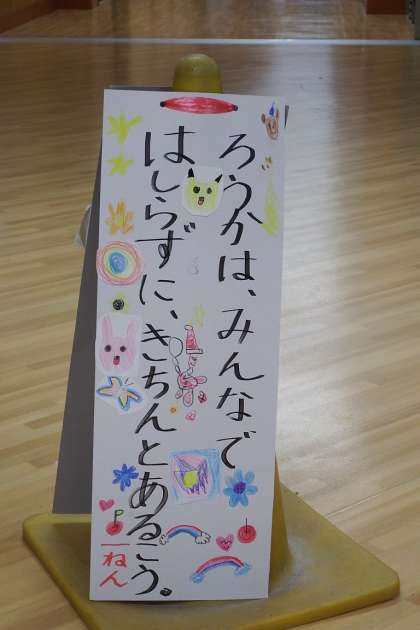 ろうかは、みんなで
はしらずに、きちんとあるこう。
一ねん